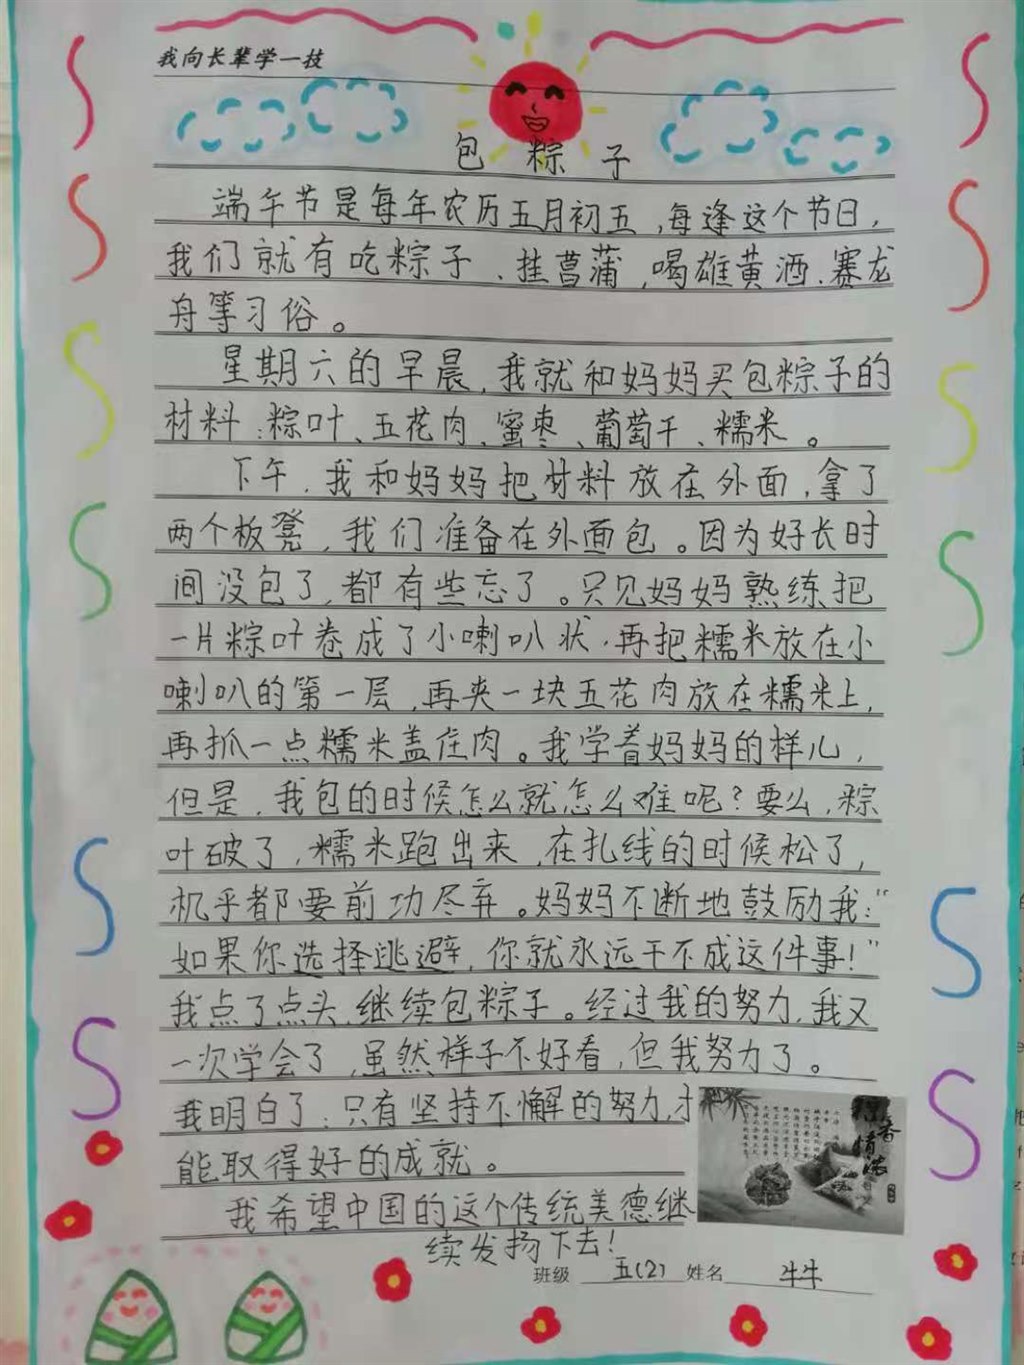 我向长辈学一技
包粽子
端午节是每年农历五月初五,每逢这个节日,
我们就有吃粽子、挂菖蒲,喝雄黄酒、赛龙
舟等习俗。
星期六的早晨,我就和妈妈买包粽子的
材料:粽叶、五花肉、蜜枣、葡萄干、糯米。
下午,我和妈妈把材料放在外面,拿了
两个板凳,我们准备在外面包。因为好长时
间没包了,都有些忘了。只见妈妈熟练把
一片粽叶卷成了小喇叭状,再把糯米放在小
喇叭的第一层,再夹一块五花肉放在糯米上,
再抓一点糯米盖住肉。我学着妈妈的样儿,
但是,我包的时候怎么就怎么难呢?要么,粽
叶破了,糯米跑出来,在扎线的时候松了,
机乎都要前功尽弃。妈妈不断地鼓励我:“
如果你选择逃避,你就永远干不成这件事!”
我点了点头,继续包粽子。经过我的努力,我又
一次学会了,虽然样子不好看,但我努力了。
我明白了:只有坚持不懈的努力,才
能取得好的成就。
我希望中国的这个传统美德继
续发扬下去!
班级 五(2) 姓名 牛牛